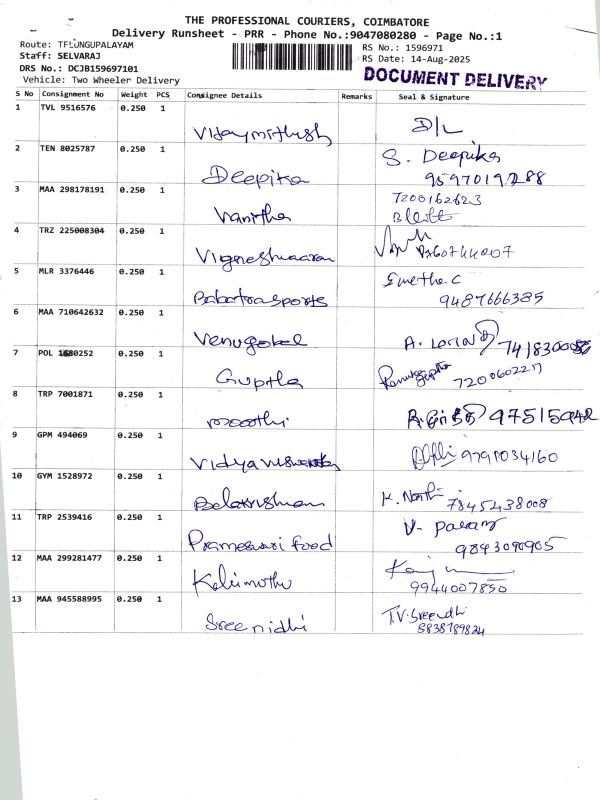 THE PROFESSIONAL COURIERS, COIMBATORE
Delivery Runsheet - PRR - Phone No.:9047080280 - Page No.:1
Route: TFLUNGUPALAYAM
Staff: SELVARAJ
DRS No.: DCJB159697101
Vehicle: Two Wheeler Delivery
RS No.: 1596971
RS Date: 14-Aug-2025
DOCUMENT DELIVERY
S No Consignment No Weight PCS Consignee Details Remarks Seal & Signature
1 TVL 9516576 0.250 1 Vijaymithesh D/L
2 TEN 8025787 0.250 1 Deepika S. Deepika
9597019288
3 MAA 298178191 0.250 1 Vanitha 7200162623
4 TRZ 225008304 0.250 1 Vigneshwaran
5 MLR 3376446 0.250 1 Babatrasports Smetha.C
9487666385
6 MAA 710642632 0.250 1 Venugobal A.
7 POL 0252 0.250 1 Guptha
7200602271
8 TRP 7001871 0.250 1 moothi
9 GPM 494069 0.250 1 Vidya 9791034160
10 GYM 1528972 0.250 1 Balakrishnan K. 7845438008
11 TRP 2539416 0.250 1 Prameswari food V.
9843090905
12 MAA 299281477 0.250 1 Kalimuthu
9944007850
13 MAA 945588995 0.250 1 Sreenidhi T.V.Sreendhi